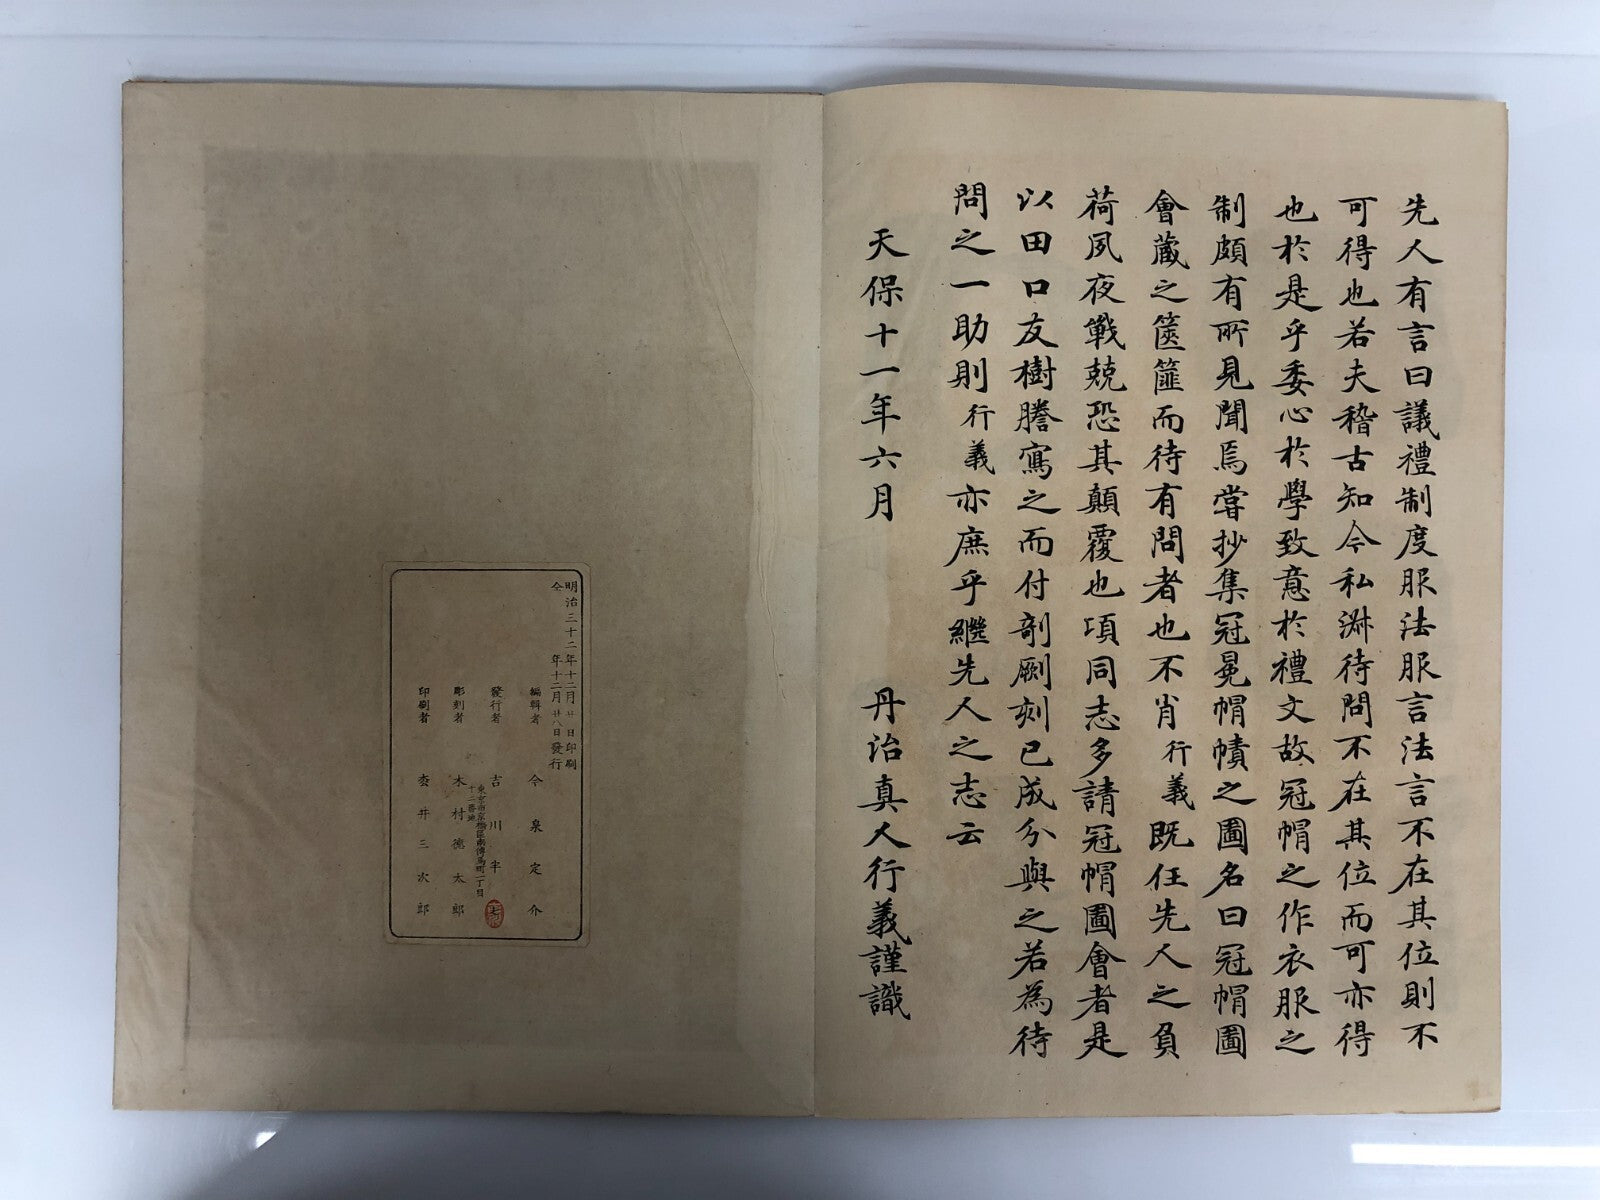 先人有言曰議禮制度服法服言法言不在其位則不
可得也若夫稽古知今私淑待問不在其位而可亦得
也於是乎委心於學致意於禮文故冠帽之作衣服之
制頗有所見聞焉嘗抄集冠冕帽幘之圖名曰冠帽圖
會藏之篋篚而待有問者也不肖行義既任先人之負
荷夙夜戰兢恐其顛覆也項同志多請冠帽圖會者是
以田口友樹謄寫之而付剞劂刻已成分與之若為待
問之一助則行義亦庶乎繼先人之志云
天保十一年六月 丹治真人行義謹識
明治三十二年十二月廿日印刷
仝年十二月廿八日發行
編輯者 今泉定介
發行者 吉川半七
東京市京橋區南傳馬町一丁目
十二番地
彫刻者 木村德太郎
印刷者 枩井三次郎